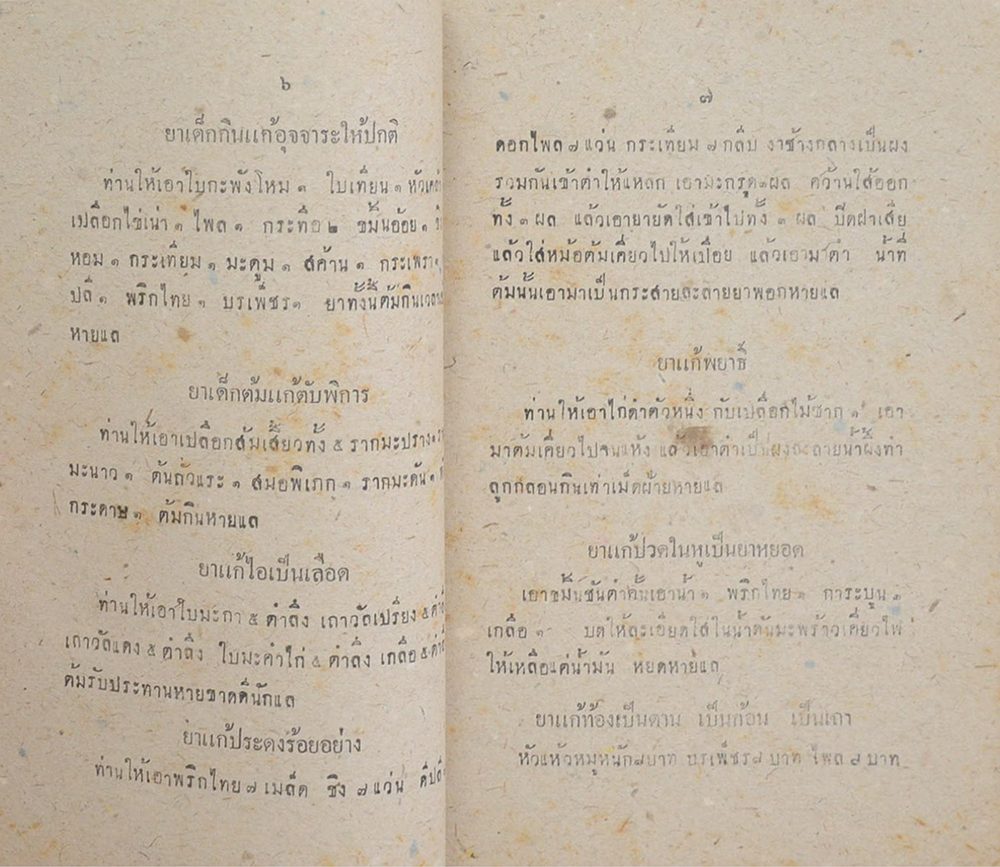 ๖
ยาเด็กกินแก้อุจจาระให้ปกติ
ท่านให้เอาใบกะพังโหม ๑ ใบเทียน ๑ หัว
เปลือกไข่เน่า ๑ ไพล ๑ กระทือ ๒ ขมิ้นอ้อย ๑
หอม ๑ กระเทียม ๑ มะตูม ๑ สค้าน ๑ กระเพรา
ปลี ๑ พริกไทย ๑ บรเพ็ชร ๑ ยาทั้งนี้ต้มกิน
หายแล
ยาเด็กต้มแก้ตับพิการ
ท่านให้เอาเปลือกส้มเสี้ยวทั้ง ๕ รากมะปราง
มะนาว ๑ ต้นถั่วแระ ๑ สมอพิเภก ๑ รากมะดัน ๑
กระดาษ ๑ ต้มกินหายแล
ยาแก้ไอเป็นเลือด
ท่านให้เอาใบมะกา ๕ ตำลึง เถาวัลเปรียง ๕
เถาวัลแดง ๕ ตำลึง ใบมะคำไก่ ๕ ตำลึง เกลือ ๕
ต้มรับประทานหายขาดดีนักแล
ยาแก้ประดงร้อยอย่าง
ท่านให้เอาพริกไทย ๗ เมล็ด ขิง ๗ แว่น
๗
ดอกไพล ๗ แว่น กระเทียม ๗ กลีบ งาช้างกลางเป็นผง
รวมกันเข้าตำให้แหลก เอามะกรูด ๓ ผล คว้านใส้ออก
ทั้ง ๓ ผล แล้วเอายายัดใส่เข้าไปทั้ง ๓ ผล ปิดฝาเสีย
แล้วใส่หม้อต้มเคี่ยวไปให้เปื่อย แล้วเอามาตำ น้ำที่
ต้มนั้นเอามาเป็นกระสายละลายยาพอกหายแล
ยาแก้พยาธิ์
ท่านให้เอาไก่ดำตัวหนึ่ง กับเปลือกไม้ซาก ๑ เอา
มาต้มเคี่ยวไปจนแห้ง แล้วเอาตำเป็นผงละลายน้ำผึ้งทำ
ลูกกลอนกินเท่าเม็ดฝ้ายหายแล
ยาแก้ปวดในหูเป็นยาหยอด
เอาขมิ้นชันตำคั้นเอาน้ำ ๑ พริกไทย ๑ การะบูน ๑
เกลือ ๑ บดให้ละเอียดใส่ในน้ำต้นมะพร้าวเคี่ยวไฟ
ให้เหลือแต่น้ำมัน หยดหายแล
ยาแก้ท้องเป็นดาน เป็นก้อน เป็นเถา
หัวแห้วหมูหนัก ๘ บาท บรเพ็ชร ๘ บาท ไพล ๘ บาท